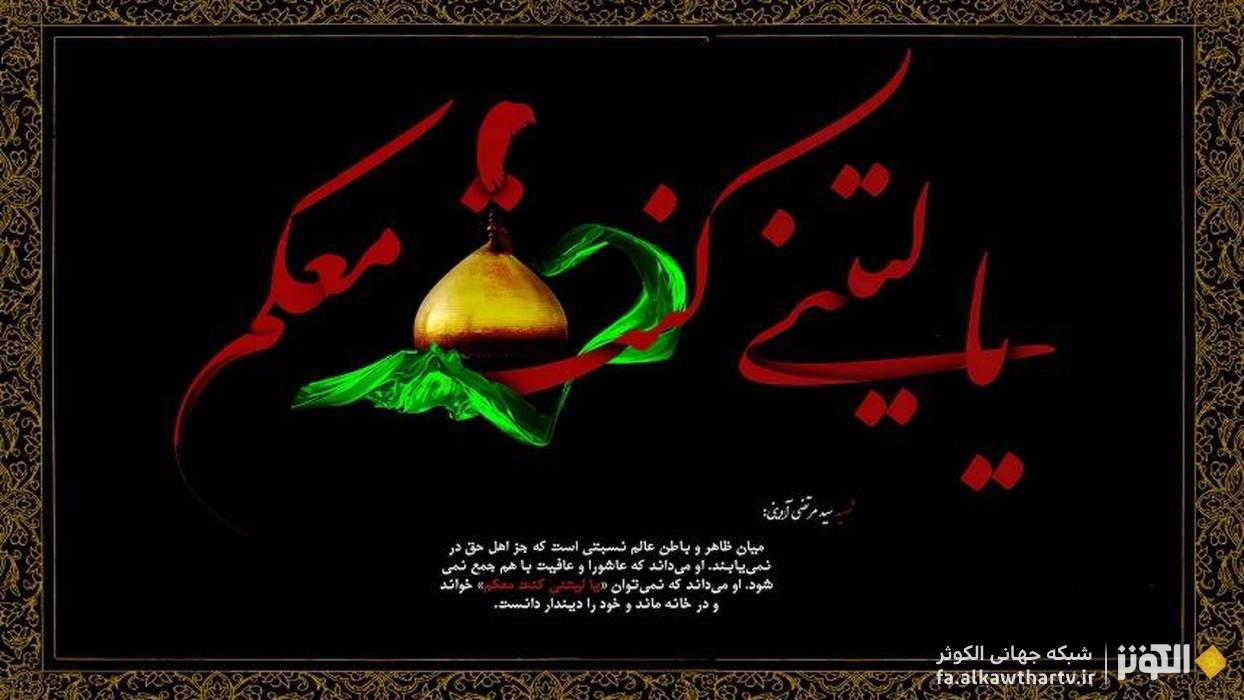 یا لیتنی کنت معکم
شهید سید مرتضی آوینی:
میان ظاهر و باطن عالم نسبتی است که جز اهل حق در
نمی‌یابند. او می‌داند که عاشورا و عافیت با هم جمع نمی
شود. او می‌داند که نمی‌توان «یا لیتنی کنت معکم» خواند
و در خانه ماند و خود را دیندار دانست.
شبکه جهانی الکوثر
fa.alkawthartv.ir
الکوثر